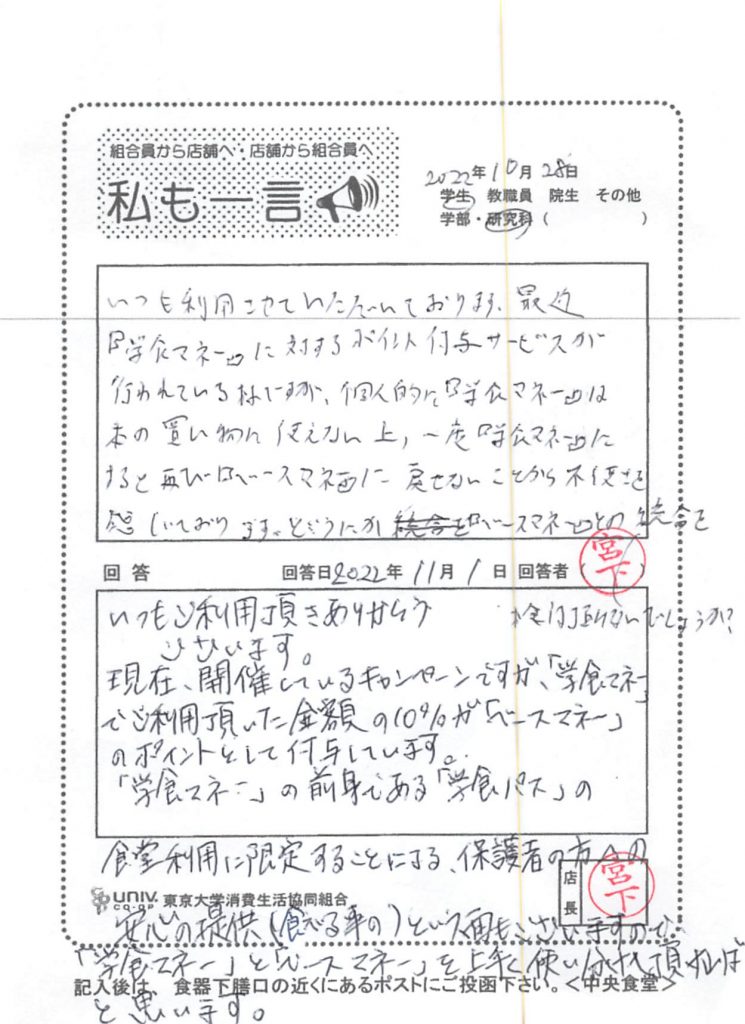 組合員から店舗へ・店舗から組合員へ
私も一言
2022年10月28日
学生 教職員 院生 その他
学部・研究科( )
いつも利用させていただいております。最近
『学食マネー』に対するポイント付与サービスが
行われている様ですが、個人的に『学食マネー』は
本の買い物に使えない上、一度『学食マネー』に
すると再び『ベースマネー』に戻せないことから不便さを
感じております。どうにか統合を『ベースマネー』との統合を
検討頂けないでしょうか?
回答 回答日2022年11月1日 回答者(宮下)
いつもご利用頂きありがとう
ございます。
現在、開催しているキャンペーンですが、「学食マネー」
でご利用頂いた金額の10%が「ベースマネー」
のポイントとして付与しています。
「学食マネー」の前身である「学食パス」の
食堂利用に限定することによる、保護者の方への
店長 宮下
univ. co-op 東京大学消費生活協同組合
安心の提供(食べる事の)という面もございますので、
「学食マネー」と「ベースマネー」を上手く使い分け頂ければ
記入後は、食器下膳口の近くにあるポストにご投函下さい。<中央食堂>
と思います。